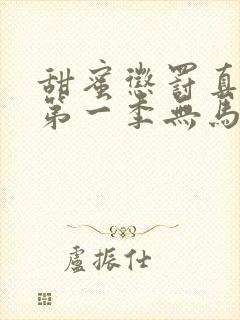 甜蜜懲罰真
第一季無馬
盧振仕